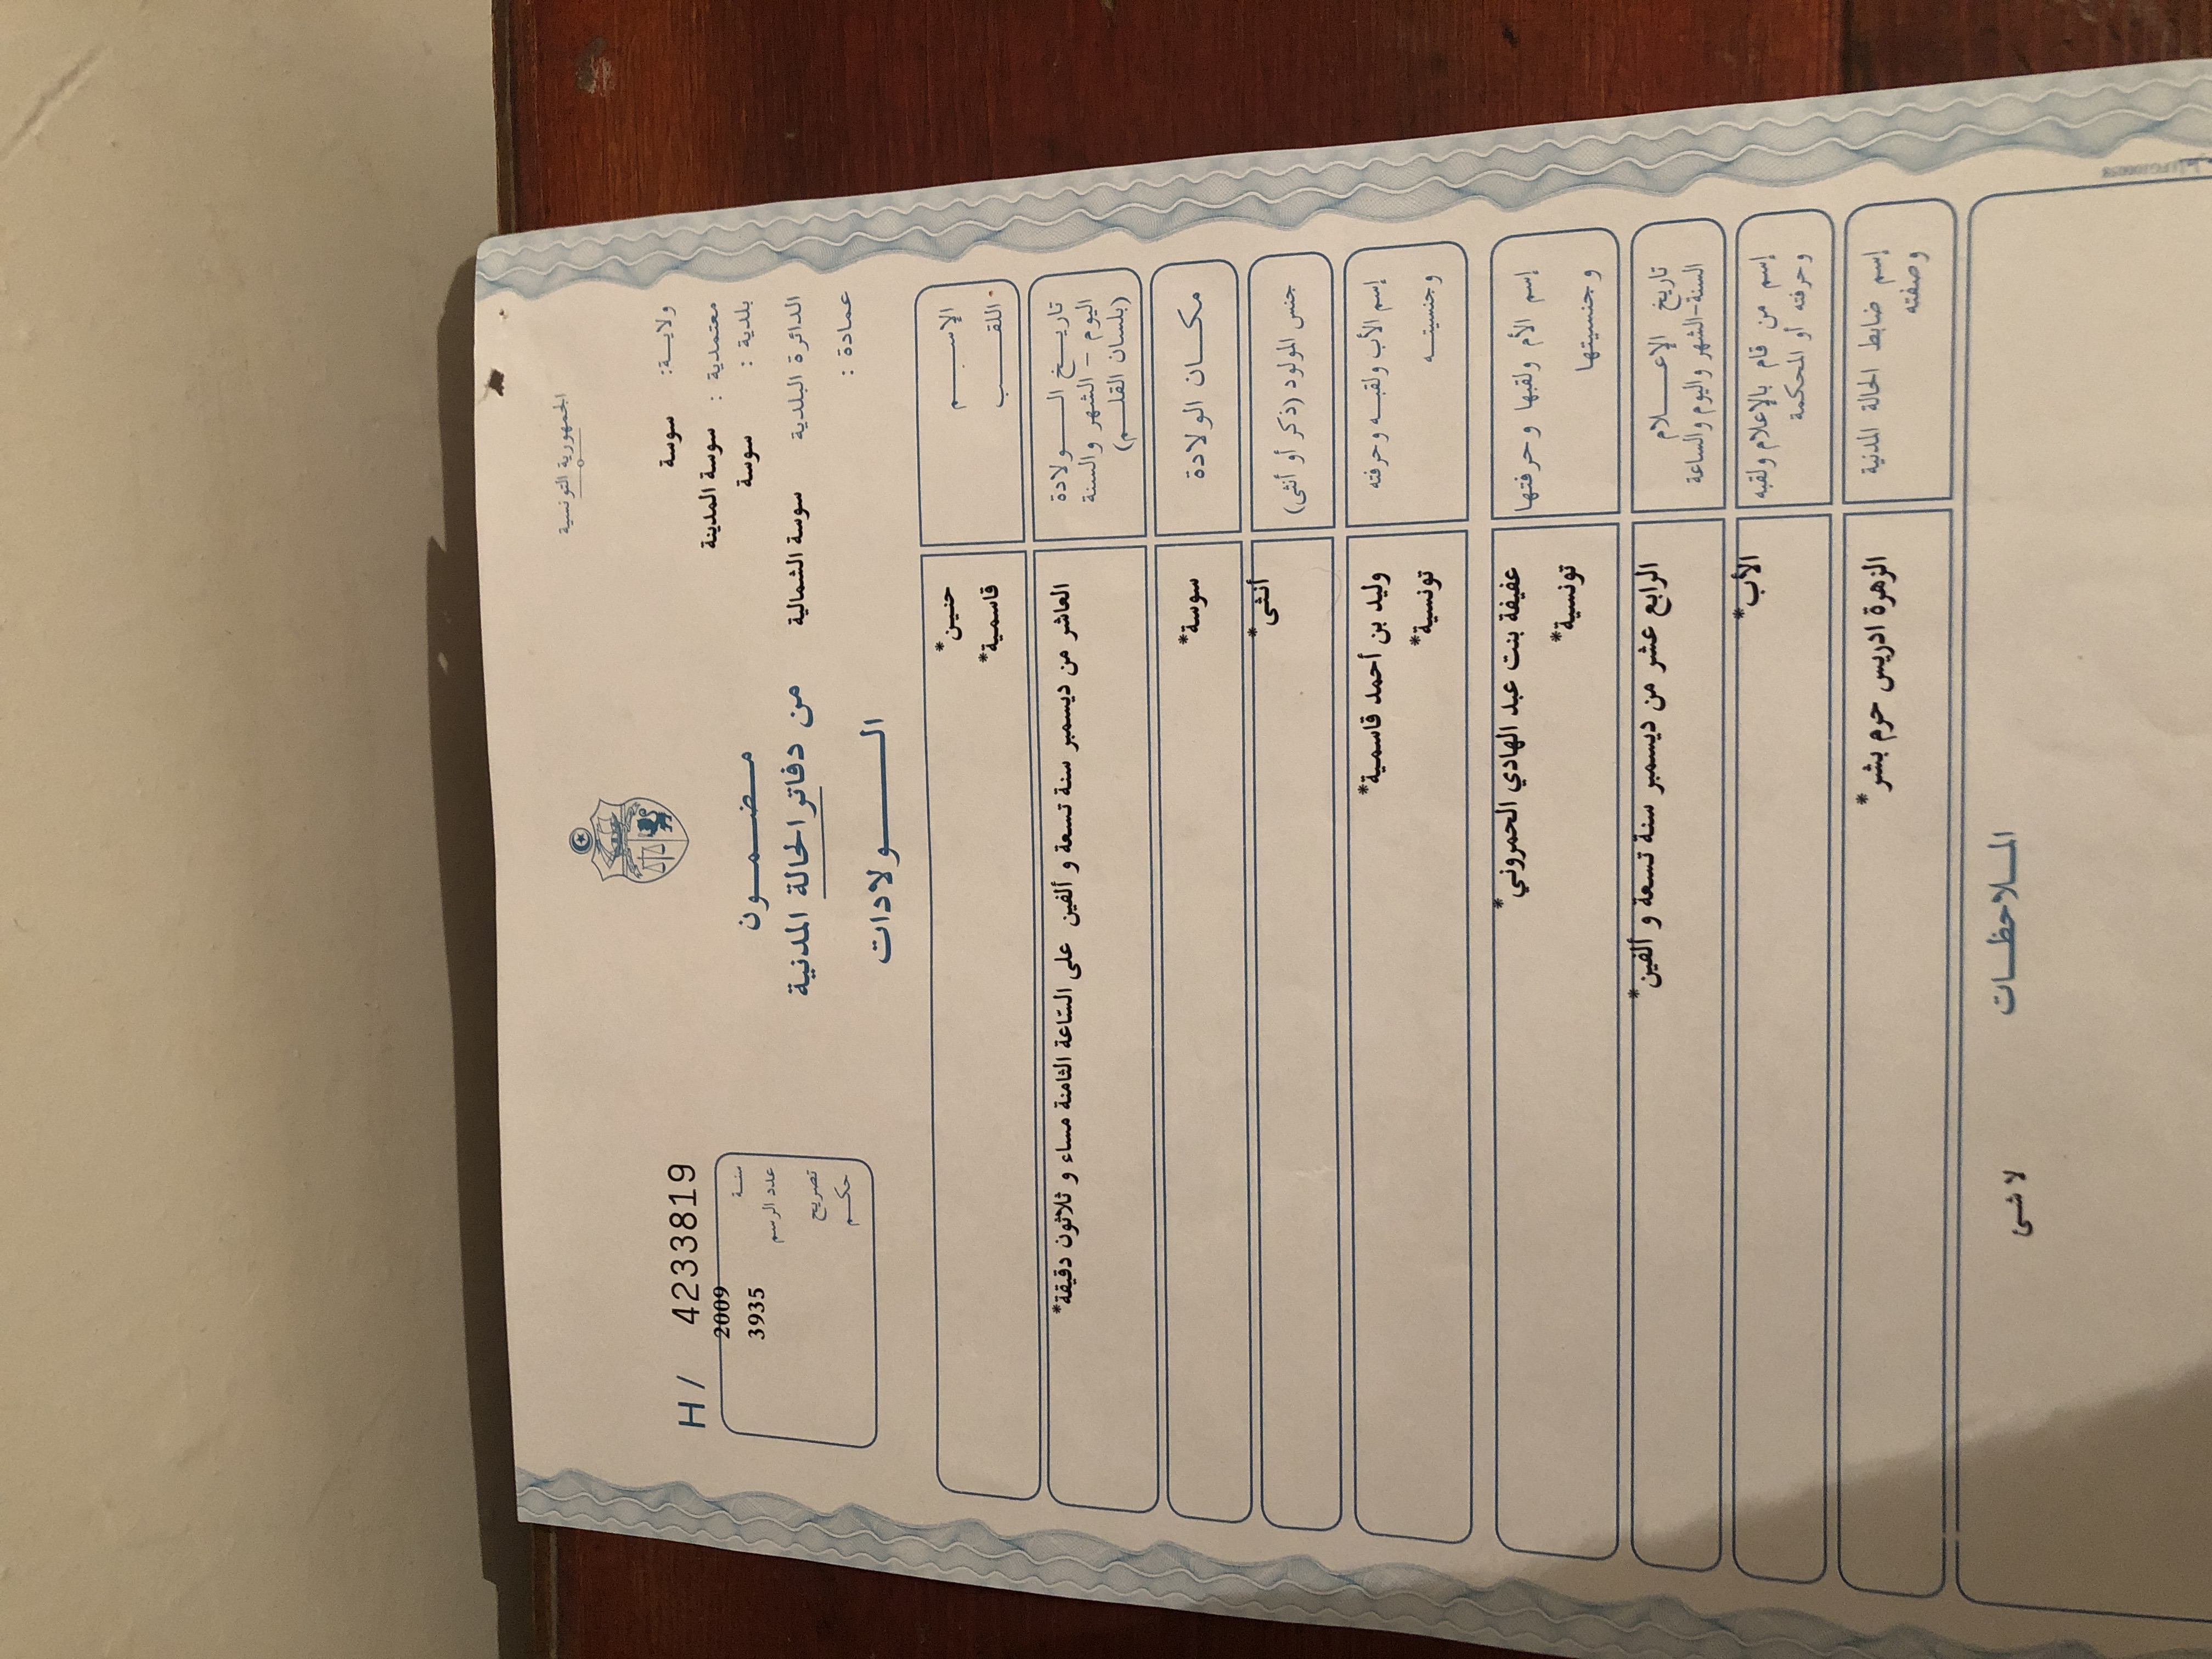 الجمهورية التونسية
ولايـة: سوسة
معتمدية : سوسة المدينة
بلدية : سوسة
الدائرة البلدية سوسة الشمالية
عمادة :
مـضـمـون
من دفاتر الحالة المدنية
الـولادات
H/ 42333819
سنـة 2009
عدد الرسم 3935
تصريح
حكـم
الإسـم حنين*
اللقـب قاسمية*
تاريـخ الـولادة
اليوم – الشهر والسنة
(بلسان القلـم)
العاشر من ديسمبر سنة تسعة و ألفين على السّاعة الثامنة مساء و ثلاثون دقيقة*
مكـان الولادة سوسة*
جنس المولود (ذكر أو أنثى) أنثى*
إسم الأب ولقبـه وحرفته وليد بن أحمد قاسمية*
وجنسيتـه تونسية*
إسم الأم ولقبها وحرفتها عفيفة بنت عبد الهادي الحمروني*
وجنسيتها تونسية*
تاريخ الإعـلام
السنة-الشهر واليوم والساعة
الرابع عشر من ديسمبر سنة تسعة و ألفين*
إسم من قام بالإعلام ولقبه
وحرفته أو المحكمة
الأب*
إسم ضابط الحالة المدنية
وصفته
الزهرة ادريس حرم بشر*
المـلاحظـات
لا شئ